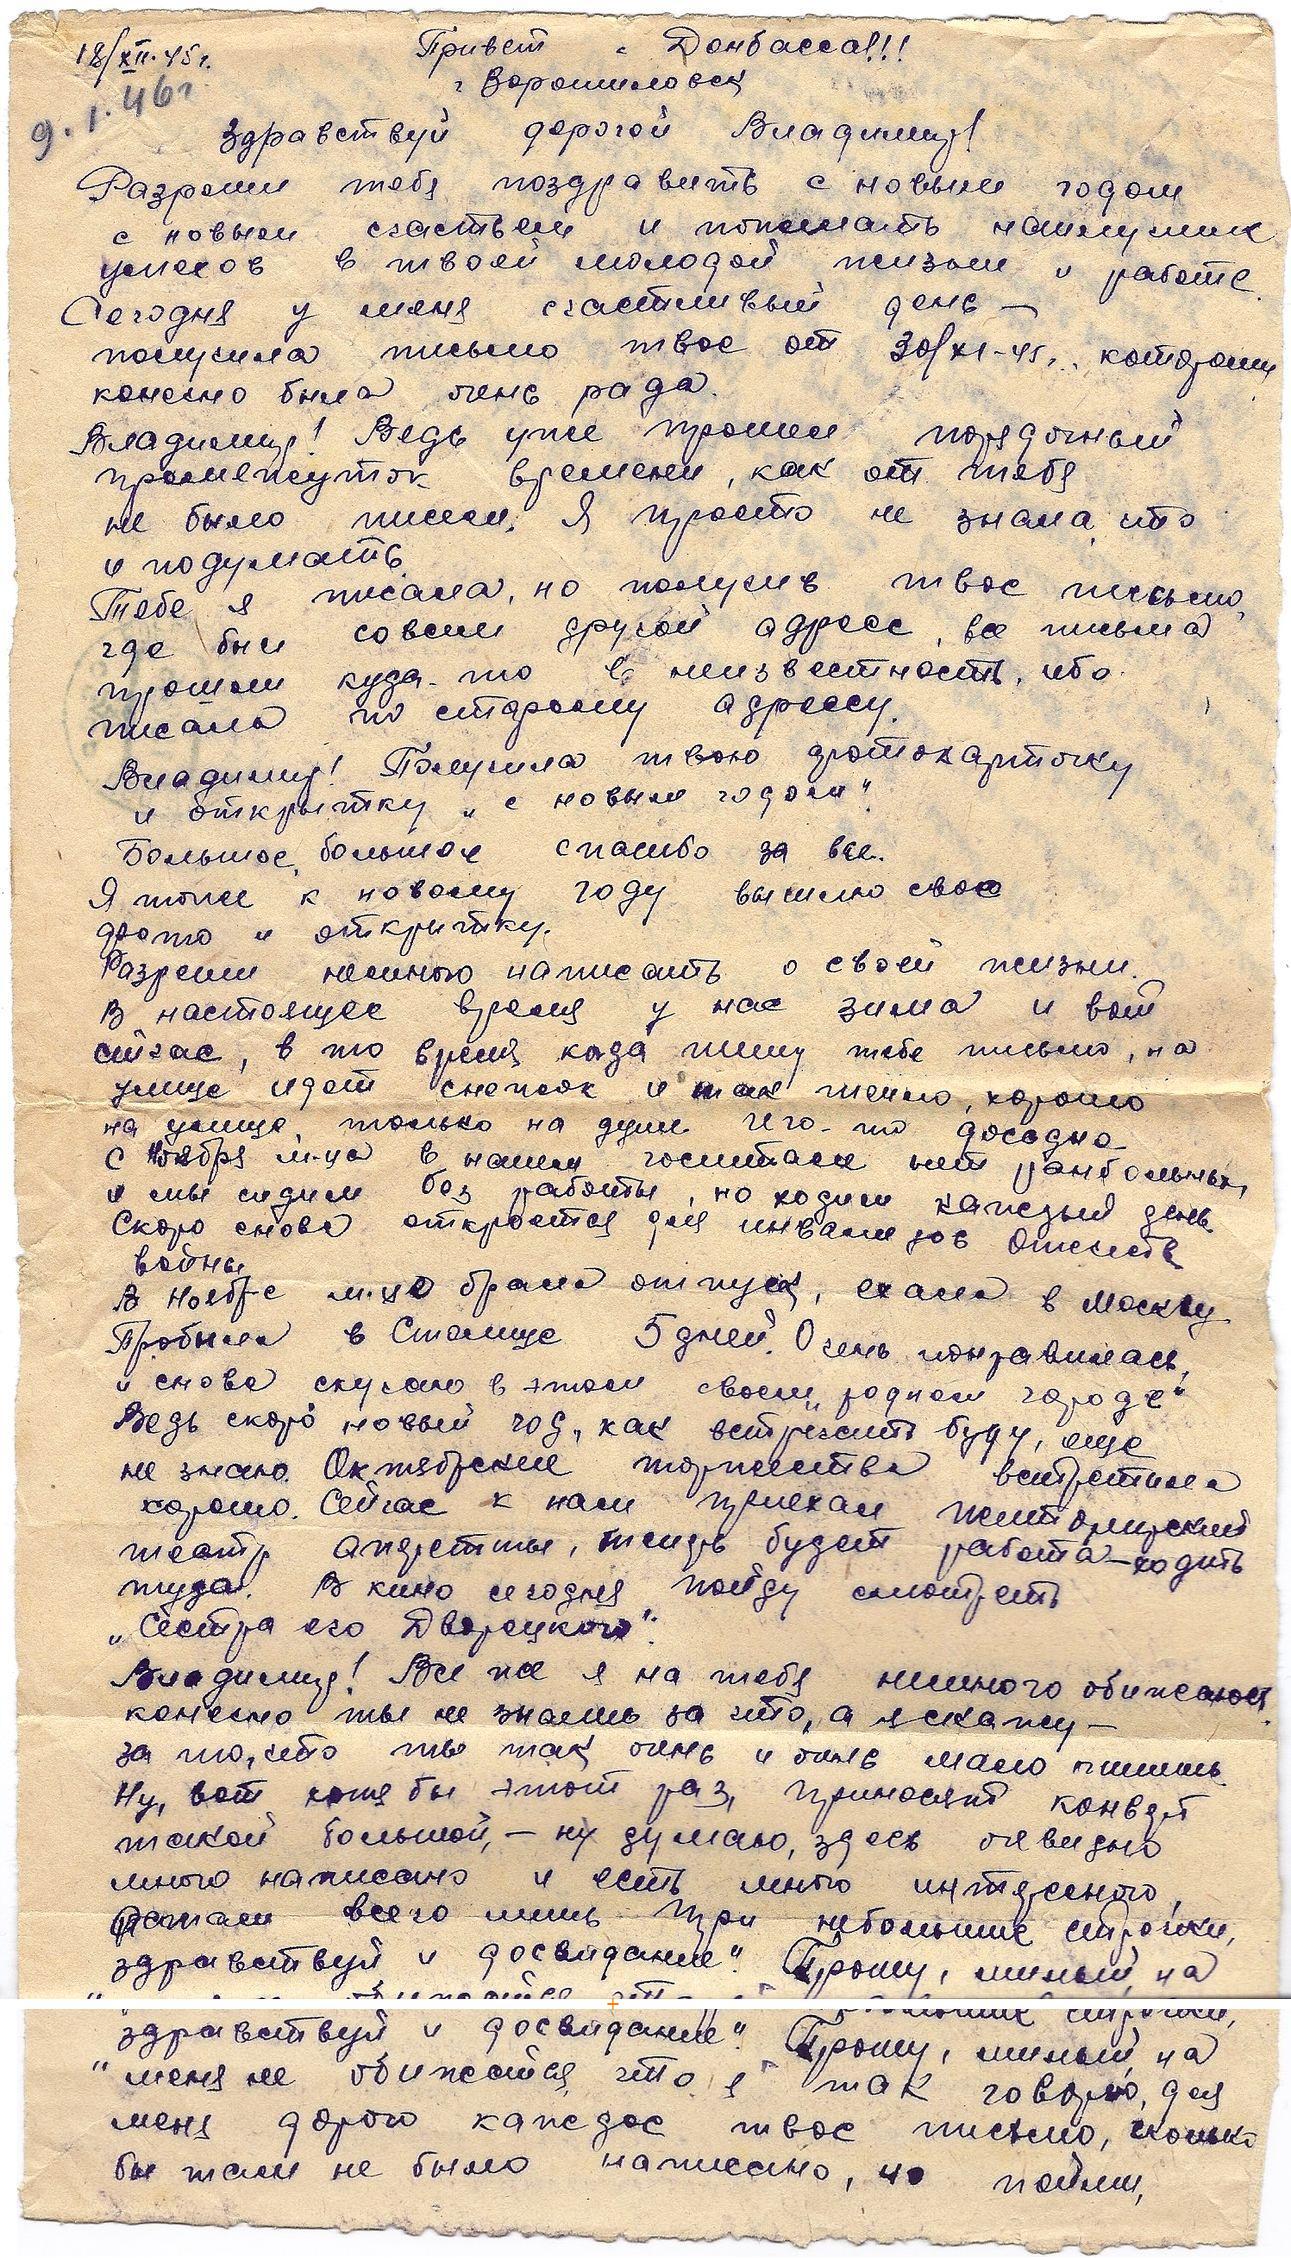 18/XII-45 г.
9.1.46 г
Привет с Донбасса!!!
г Ворошиловск
Здравствуй дорогой Владимир!
Разреши тебя поздравить с новым годом
с новым счастьем и пожелать наилучших
успехов в твоей молодой жизни и работе.
Сегодня у меня счастливый день —
получила письмо твое от 30/XI-45 г. которому
конечно была очень рада.
Владимир! Ведь уже прошел порядочный
промежуток времени, как от тебя
не было писем. Я просто не знала, что
и подумать.
Тебе я писала, но получив твое письмо,
где был совсем другой адресс, все письма
прошли куда-то в неизвестность, ибо
писала по старому адрессу.
Владимир! Получила твою фотокарточку
и открытку „с новым годом".
Большое, большое спасибо за все.
Я тоже к новому году вышлю свою
фото и открытку.
Разреши немного написать о своей жизни.
В настоящее время у нас зима и вот
сейчас, в то время когда пишу тебе письмо, на
улице идет снежок и так тепло, хорошо
на улице, только на душе чего-то досадно
С Ноября м-ца в нашем госпитале нет ранбольных
и мы сидим без работы, но ходим каждый день
Скоро снова откроется для инвалидов Отечеств
войны
В Ноябре м-це брала отпуск, ехала в Москву
Пробыла в Столице 5 дней. Очень понравилась,
и снова скучаю в этом своем „родном городе"
Ведь скоро новый год, как встречать буду, еще
не знаю. Октябрьские торжества встретила
хорошо. Сейчас к нам приехал Житомирский
театр оперетты, теперь будет работа — ходить
туда. В кино сегодня пойду смотреть
„Сестра его Дворецкого".
Владимир! Все же я на тебя немного обижаюсь
конечно ты не знаешь за что, а я скажу —
за то, что ты так очень и очень мало пишешь
Ну, вот хотя бы этот раз, приносят конверт
такой большой, — ну думаю, здесь очевидно
много написано и есть много интересного,
всего лишь три небольшие строчки,
здравствуй и досвидание". Прошу, милый, на
здравствуй и досвидание". Прошу, милый, на
меня не обижайся, что я так говорю, для
меня дорого каждое твое письмо, сколько
бы там не было написано, но пойми,